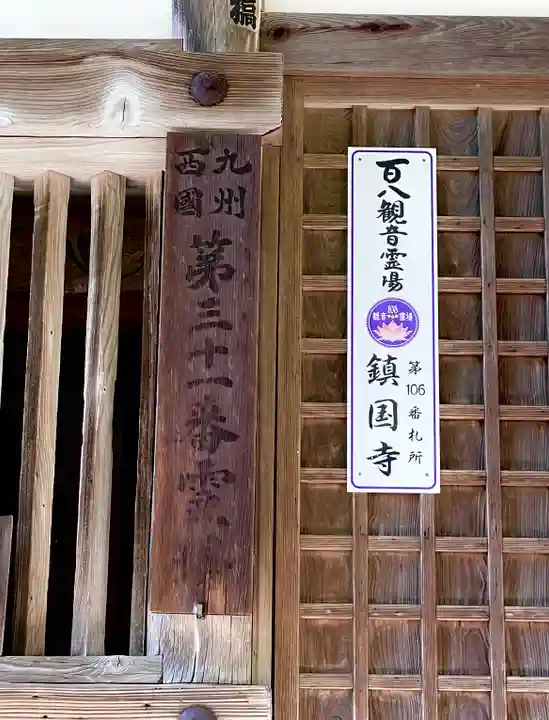 九州
西國
第三十一番霊場
百八観音霊場
108
観音霊場
第106番札所
鎮国寺